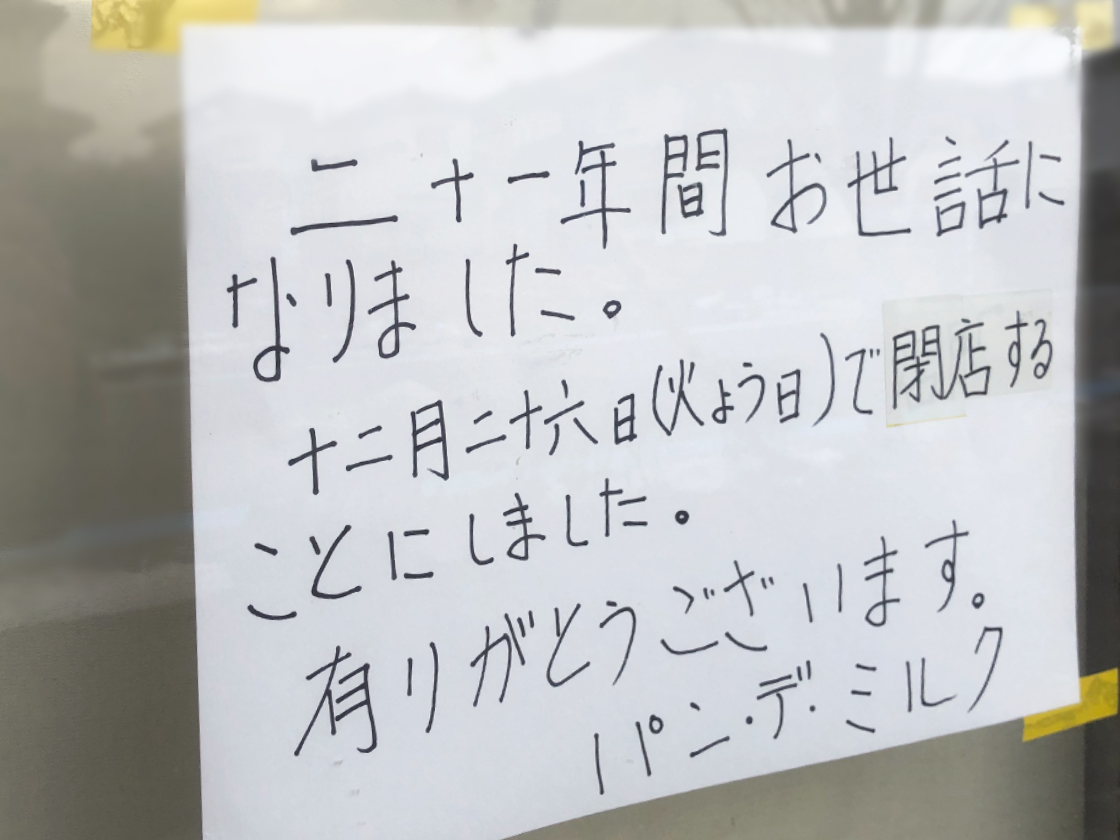 二十一年間お世話に
なりました。
十二月二十六日(火よう日)で閉店する
ことにしました。
有りがとうございます。
パン・デ・ミルク